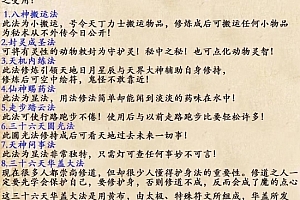 之使用！
1.八神搬运法
此法为小搬运，号令天丁力士搬运物品，修炼后可搬运任何小物品
为秘术从不外传今日公开！
2.封灵成圣法
可将有灵性的动物敕封为守护灵！秘中之秘！也可点化动物灵智！
3.天机内炼法
此法修炼引领天地日月星辰与天界大神辅助自身修持，
修炼后可空中绘符，鬼怪不敢靠近！
4.仙神赐药法
此法为显法，用法修法简单却能闹到淡淡的药味在水中！
5.走步踏云法
此法可使行路跑步不倦！使用后与以前走路跑步比要轻松许多！
6.三十六天圆光法
此圆光法修持成后可看天地过去未来一切事！
7.天神问事法
此法为显法非常独特，只需灯可查任何事妙不可言！
8.三十六天华盖大法
现在很多人都崇尚修道，但却很少人懂得护身法的重要性。修道之人一
定要先学会保护自己，要修护身，否则修道不成，反而会成了魔的点心
这三十六天华盖大法是用黄布，由太极、特殊符文所组成，华盖所发